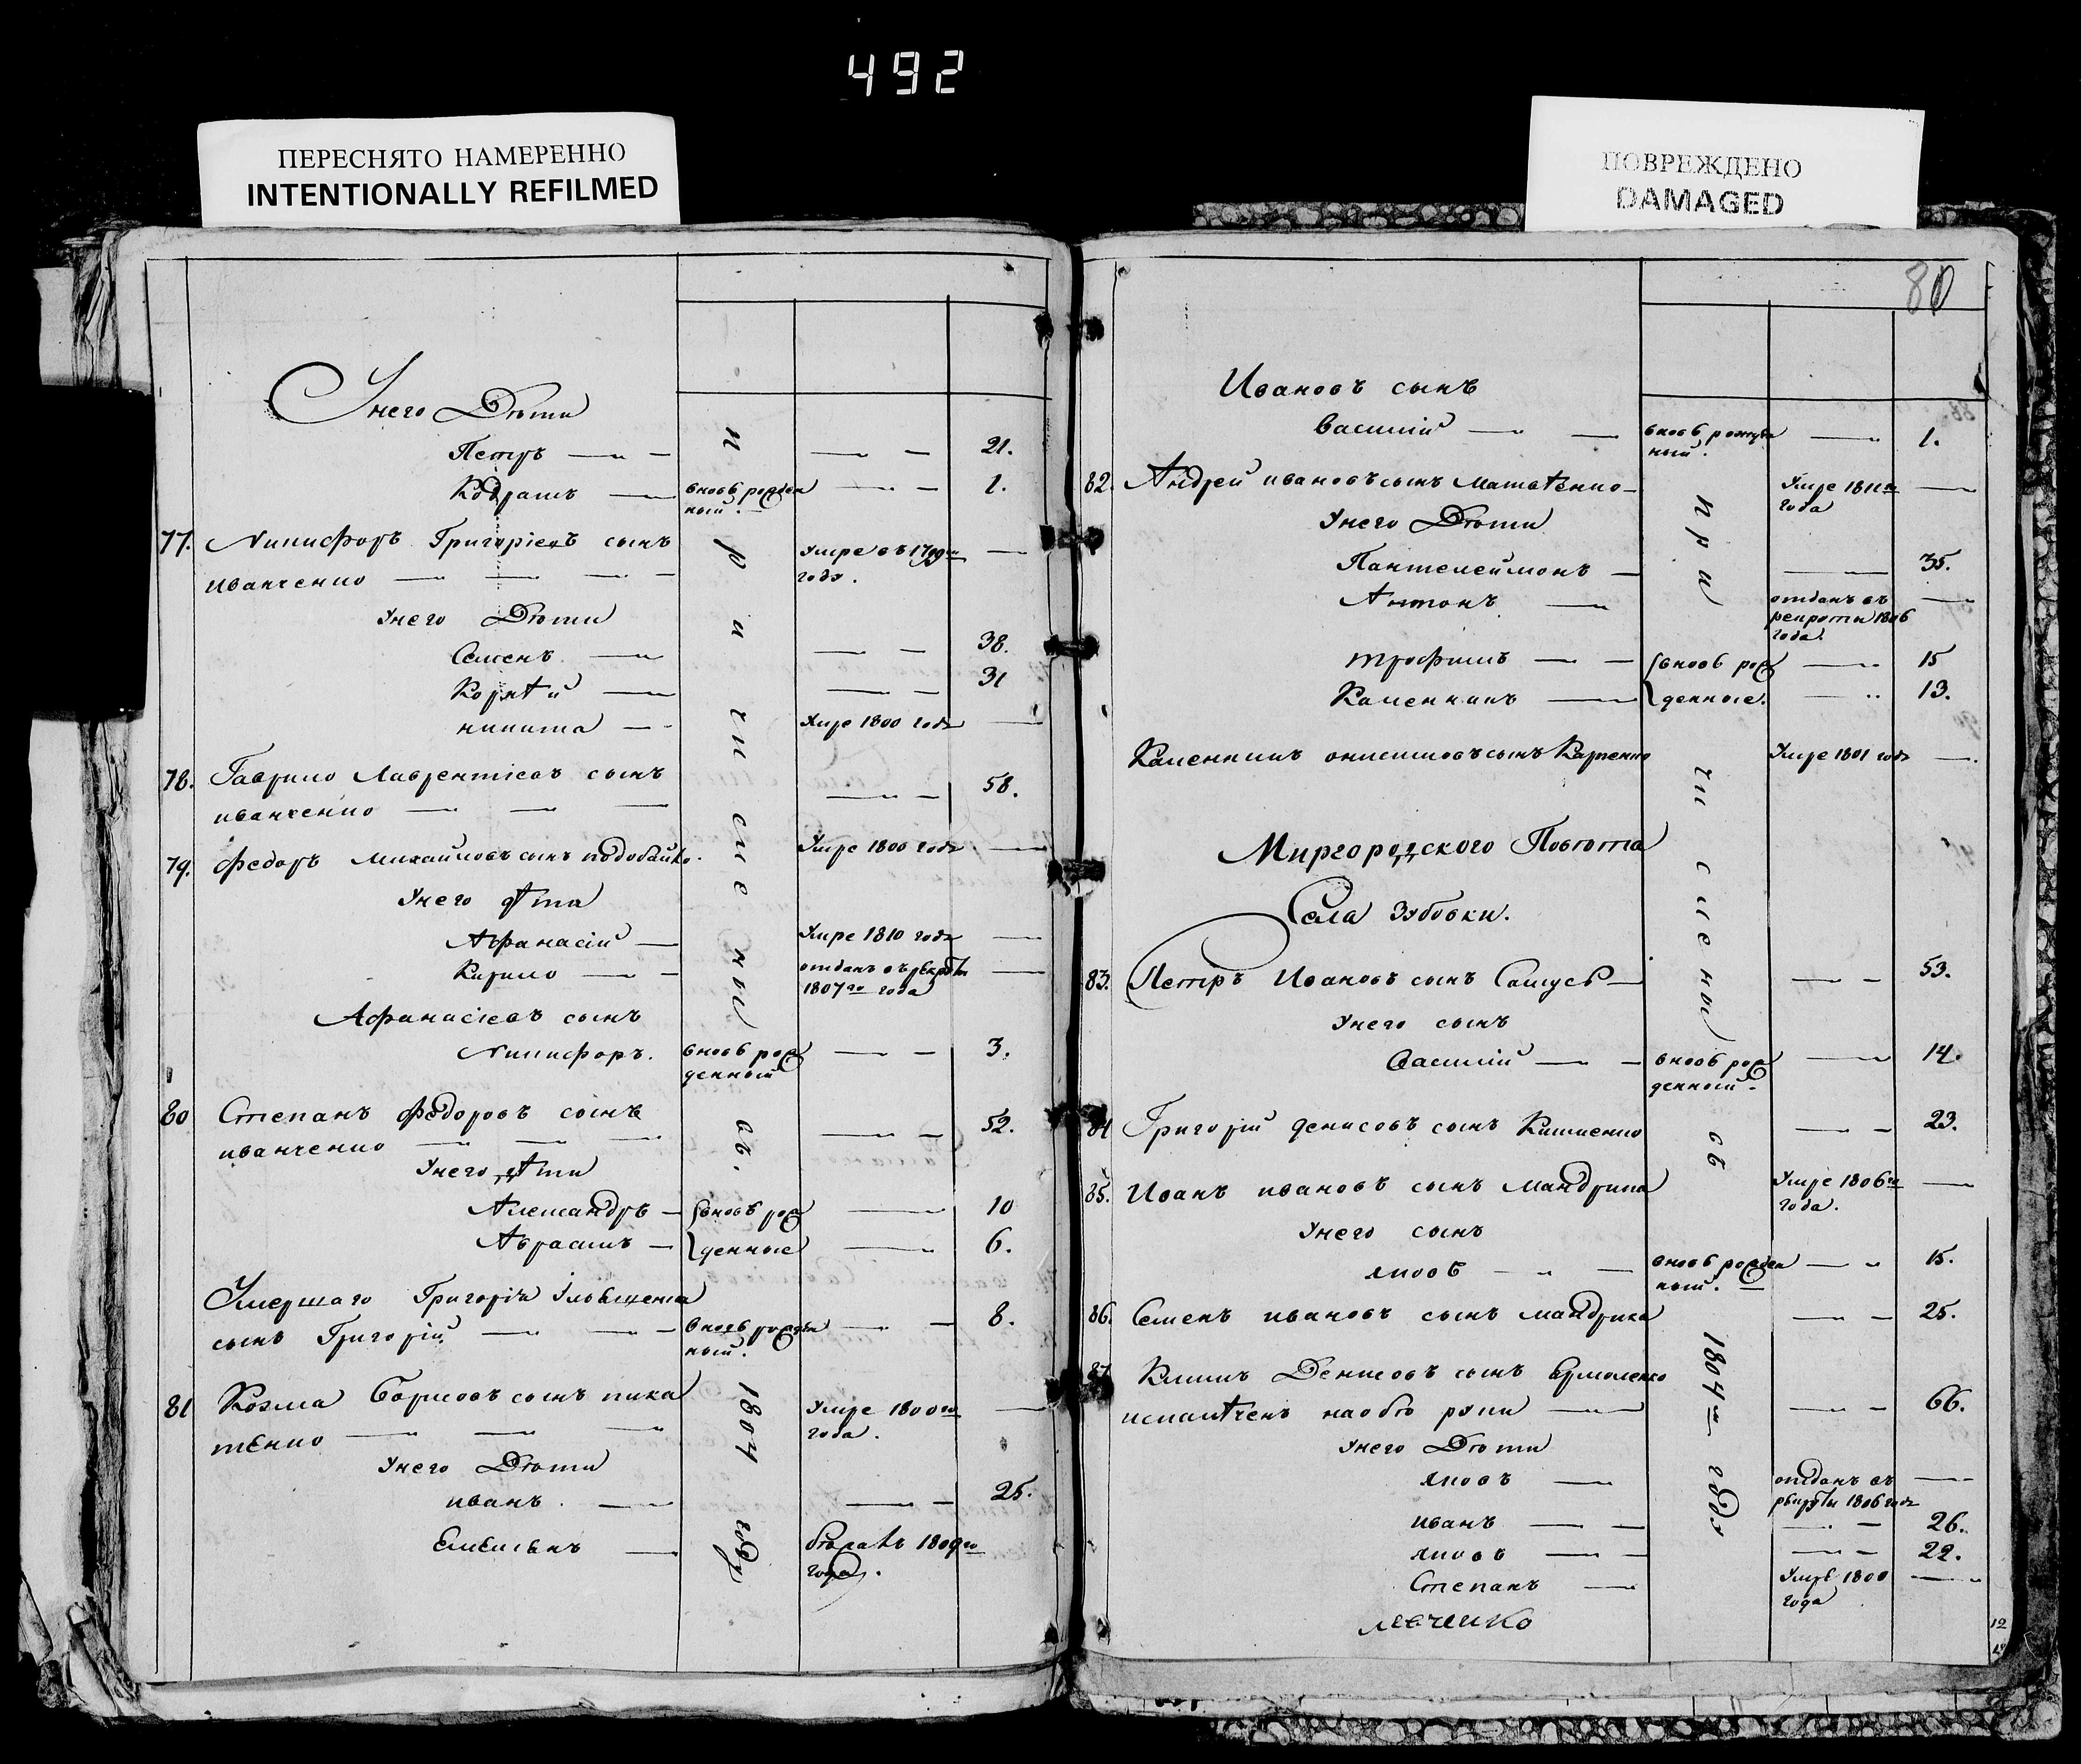 492
ПЕРЕСНЯТО НАМЕРЕННО
INTENTIONALLY REFILMED
ПОВРЕЖДЕНО
DAMAGED
Унего Дѣти
Петръ 21.
Кодратъ вновь рожден 1.
ный.
77. Никифоръ Григоріевъ сынъ Умре въ 1799го
иванченко году.
Унего Дѣти
Семенъ 38.
Корнѣй 31
никита Умре 1800 году
78. Гаврило Лаврентіевъ сынъ 58.
иванченко
79. Федоръ михайловъ сынъ подобайко. Умре 1800 году
Унего дѣти
Афанасій Умре 1810 году
Кирило отданъ въ рекруты
1807го года
Афанасіевъ сынъ
Никифоръ. вновь рож 3.
денный
80 Степанъ Федоровъ сынъ 52.
иванченко
Унего дѣти
Александръ вновь рож 10
Абрамъ денные 6.
Умершаго Григорія
сынъ Григорій вновь рожден 8.
ный.
81 Козма Борисовъ сынъ мака Умре 1800го
тЕнко года.
Унего Дѣти
иванъ. 25.
ЕмЕльянъ бѣжалъ 1809го
года.
причисленый въ. 1804 году
80
Ивановъ сынъ
Василій вновь рожде 1.
ный.
82. Андрей ивановъ сынъ матвѣенко Умре 1811го
года
Унего Дѣти
Пантелеймонъ 35.
Антонъ отданъ въ
рекруты 1806
года.
трофимъ вновь рож 15
Каленникъ денные. 13.
Каленникъ онисимовъ сынъ Умре 1801 году
Миргородского Повѣта
Села Зубовки.
83. Петръ Ивановъ сынъ Самусь 53.
Унего сынъ
Василій вновь рож 14.
денный.
84 Григорій денисовъ сынъ 23.
85. Иванъ ивановъ сынъ мандрика Умре 1806го
года.
Унего сынъ
яковъ вновь рожден 15.
ный.
86. Семенъ ивановъ сынъ мандрика 25.
87 Климъ Денисовъ сынъ Ермоленко
искалѣченъ наобѣ руки 66.
Унего Дѣти
яковъ отданъ въ
рекруты 1806 году
иванъ 26.
яковъ 22.
Степанъ Умре 1800
года
левченко
причисленый въ 1804м году